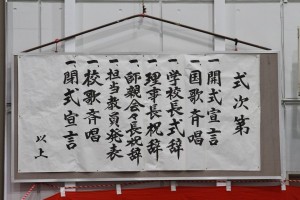 式次第
一開式宣言
一国歌斉唱
一学校長式辞
一理事長祝辞
一師親会々長祝辞
一担当教員発表
一校歌斉唱
一閉式宣言
以上